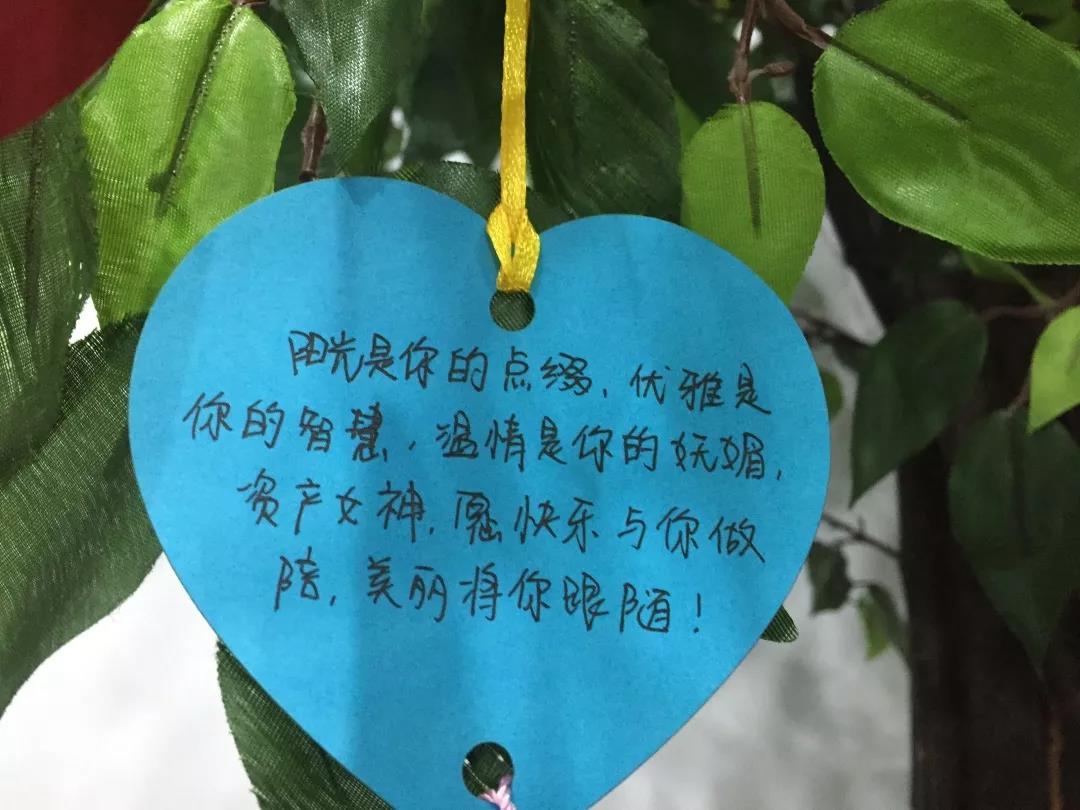 阳光是你的点缀，优雅是
你的智慧，温情是你的妩媚，
资产女神，愿快乐与你做
陪，美丽将你跟随！